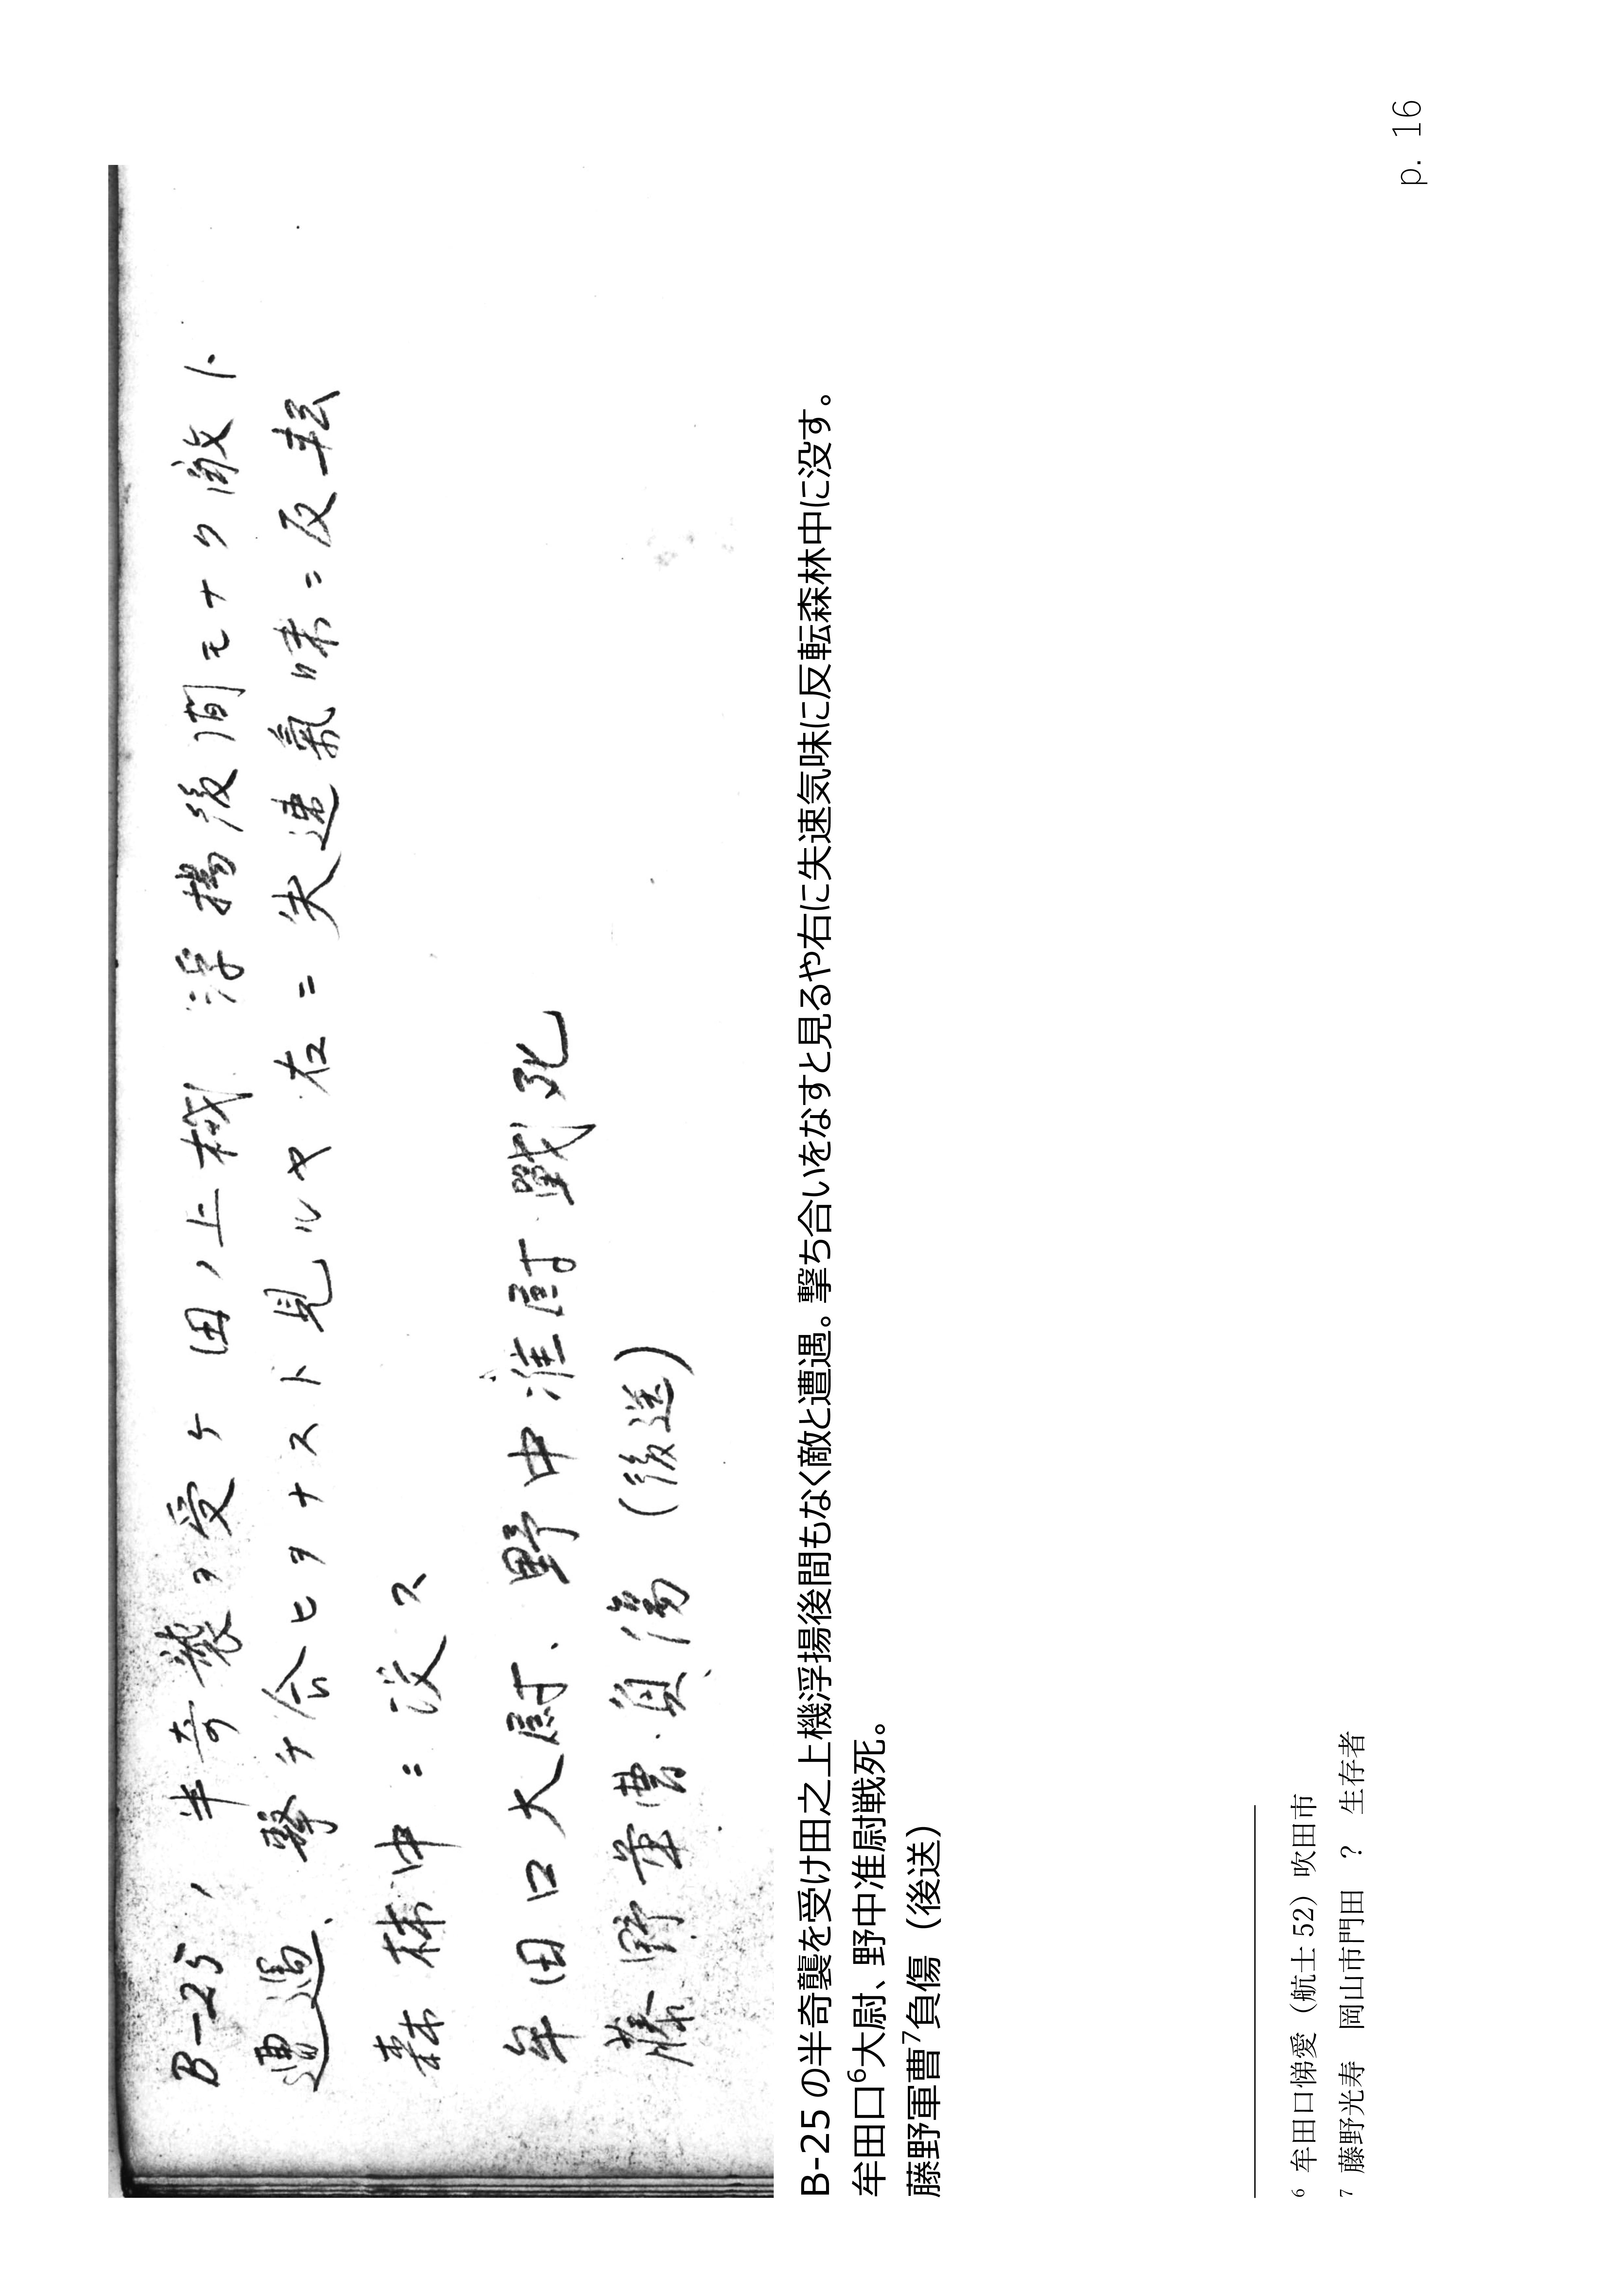 B-25ノ半奇襲ヲ受ケ田ノ上機浮揚後間モナク敵ト
遭遇、撃チ合ヒヲナスト見ルヤ右ニ失速氣味ニ反転
森林中ニ没ス
牟田口大尉、野中准尉戰死
藤野軍曹、負傷(後送)
B-25の半奇襲を受け田之上機浮揚後間もなく敵と遭遇。撃ち合いをなすと見るや右に失速気味に反転森林中に没す。
牟田口6大尉、野中准尉戦死。
藤野軍曹7負傷（後送）
6 牟田口悌愛（航士52）吹田市
7 藤野光寿　岡山市門田　？　生存者
p. 16